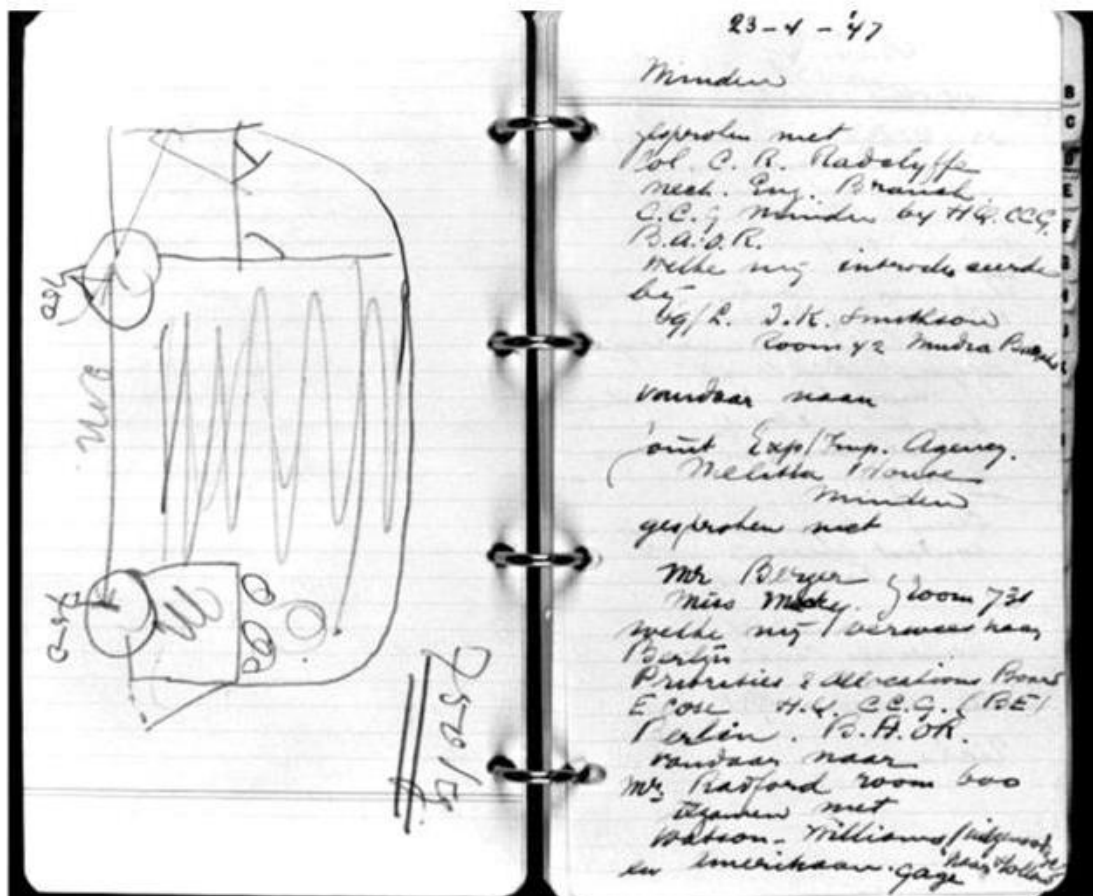 23-4-'47
Minden
gesproken met
Col. C. R. Radclyffe
mech. Eng. Branch
C.C.G Minden by HQ. CCG.
B.A.O.R.
welke mij introduceerde
bij
J.K. Smithson
Room 42 Mudra
vandaar naar
Joint Exp/Imp. Agency.
Melitta House
Minden
gesproken met
Mr Berger
Miss room 731
welke mij verwees naar
Berlijn
Priorities & Allocations Board
E H.Q. C.C.G. (BE)
Berlin. B.A.OR.
vandaar naar
Mr Radford room 600
tezamen met
Watson-Williams
en Amerikaan. Gage naar Holland
B
C
D
E
F
G
H
J